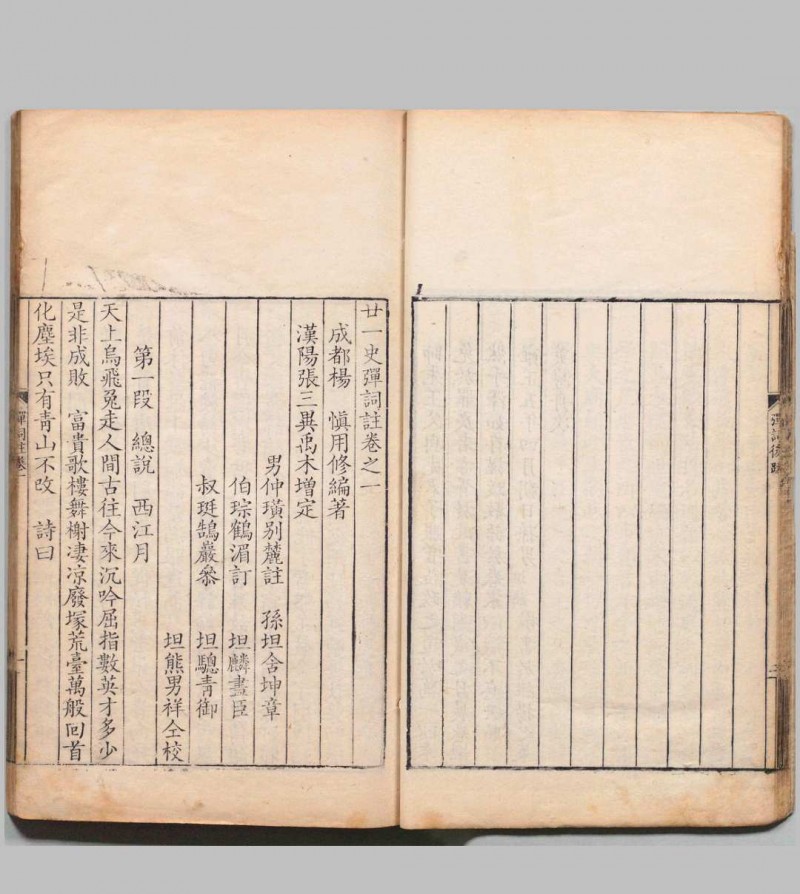 廿一史彈詞註卷之一
成都楊 愼用修編著
漢陽張三異禹木增定
男仲璜別麓註 孫坦舍坤章
伯琮鶴湄訂 坦麟晝臣
叔珽鵠巖叅 坦驄青御
坦熊男祥仝校
第一段 總說 西江月
天上烏飛兔走人間古往今來沉吟屈指數英才多少
是非成敗 富貴歌樓舞榭凄凉廢塚荒臺萬般回首
化塵埃只有靑山不改 詩曰
彈詞註卷一
一